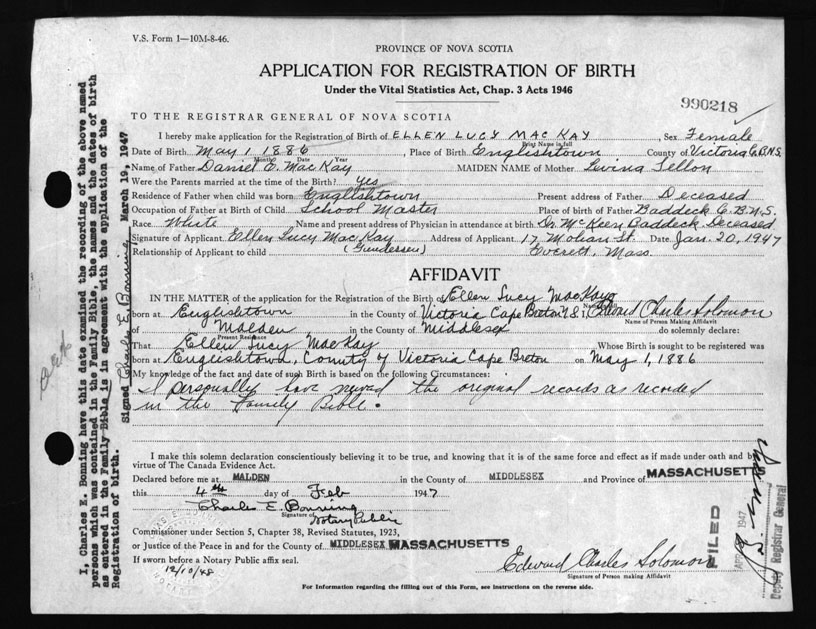 V.S. Form 1—10M-8-46.
PROVINCE OF NOVA SCOTIA
APPLICATION FOR REGISTRATION OF BIRTH
Under the Vital Statistics Act, Chap. 3 Acts 1946
990218
TO THE REGISTRAR GENERAL OF NOVA SCOTIA
I hereby make application for the Registration of Birth of ELLEN LUCY MAC KAY, Sex Female
Print Name in full
Date of Birth May 1 1886, Place of Birth Englishtown County of Victoria C.B.N.S.
Month Date Year
Name of Father Daniel E. MacKay MAIDEN NAME of Mother Lwina Tellon
Were the Parents married at the time of the Birth? yes
Residence of Father when child was born Englishtown Present address of Father Deceased
Occupation of Father at Birth of Child School Master Place of birth of Father Baddeck C.B.N.S.
Race White Name and present address of Physician in attendance at birth Dr. McKeen Baddeck Deceased
Signature of Applicant Ellen Lucy MacKay Address of Applicant 17 Mohan St. Date Jan. 20, 1947
Relationship of Applicant to child (Gundersen) Everett, Mass.
AFFIDAVIT
IN THE MATTER of the application for the Registration of the Birth of Ellen Lucy MacKay
born at Englishtown in the County of Victoria Cape Breton N.S. I, Edward Charles Solomon
Name of Person Making Affidavit
of Malden in the County of Middlesex do solemnly declare:
Present Residence
That Ellen Lucy MacKay Whose Birth is sought to be registered was
born at Englishtown, County of Victoria Cape Breton on May 1, 1886
My knowledge of the fact and date of such Birth is based on the following Circumstances:
I personally have viewed the original records as recorded
in the Family Bible.
I make this solemn declaration conscientiously believing it to be true, and knowing that it is of the same force and effect as if made under oath and by
virtue of The Canada Evidence Act.
Declared before me at MALDEN in the County of MIDDLESEX and Province of MASSACHUSETTS
this 4th day of Feb 1947
Charles E. Bonning
Signature of Notary Public
Commissioner under Section 5, Chapter 38, Revised Statutes, 1923,
or Justice of the Peace in and for the County of MIDDLESEX MASSACHUSETTS
If sworn before a Notary Public affix seal.
12/10/48
Edward Charles Solomon
Signature of Person making Affidavit
For Information regarding the filling out of this Form, see instructions on the reverse side.
I, Charles E. Bonning have this date examined the recording of the above named
persons which was contained in the Family Bible, the names and the dates of birth
as entered in the Family Bible is in agreement with the application of the
Registration of birth.
Signed Charles E. Bonning March 19, 1947
FILED
1947
Deputy Registrar General